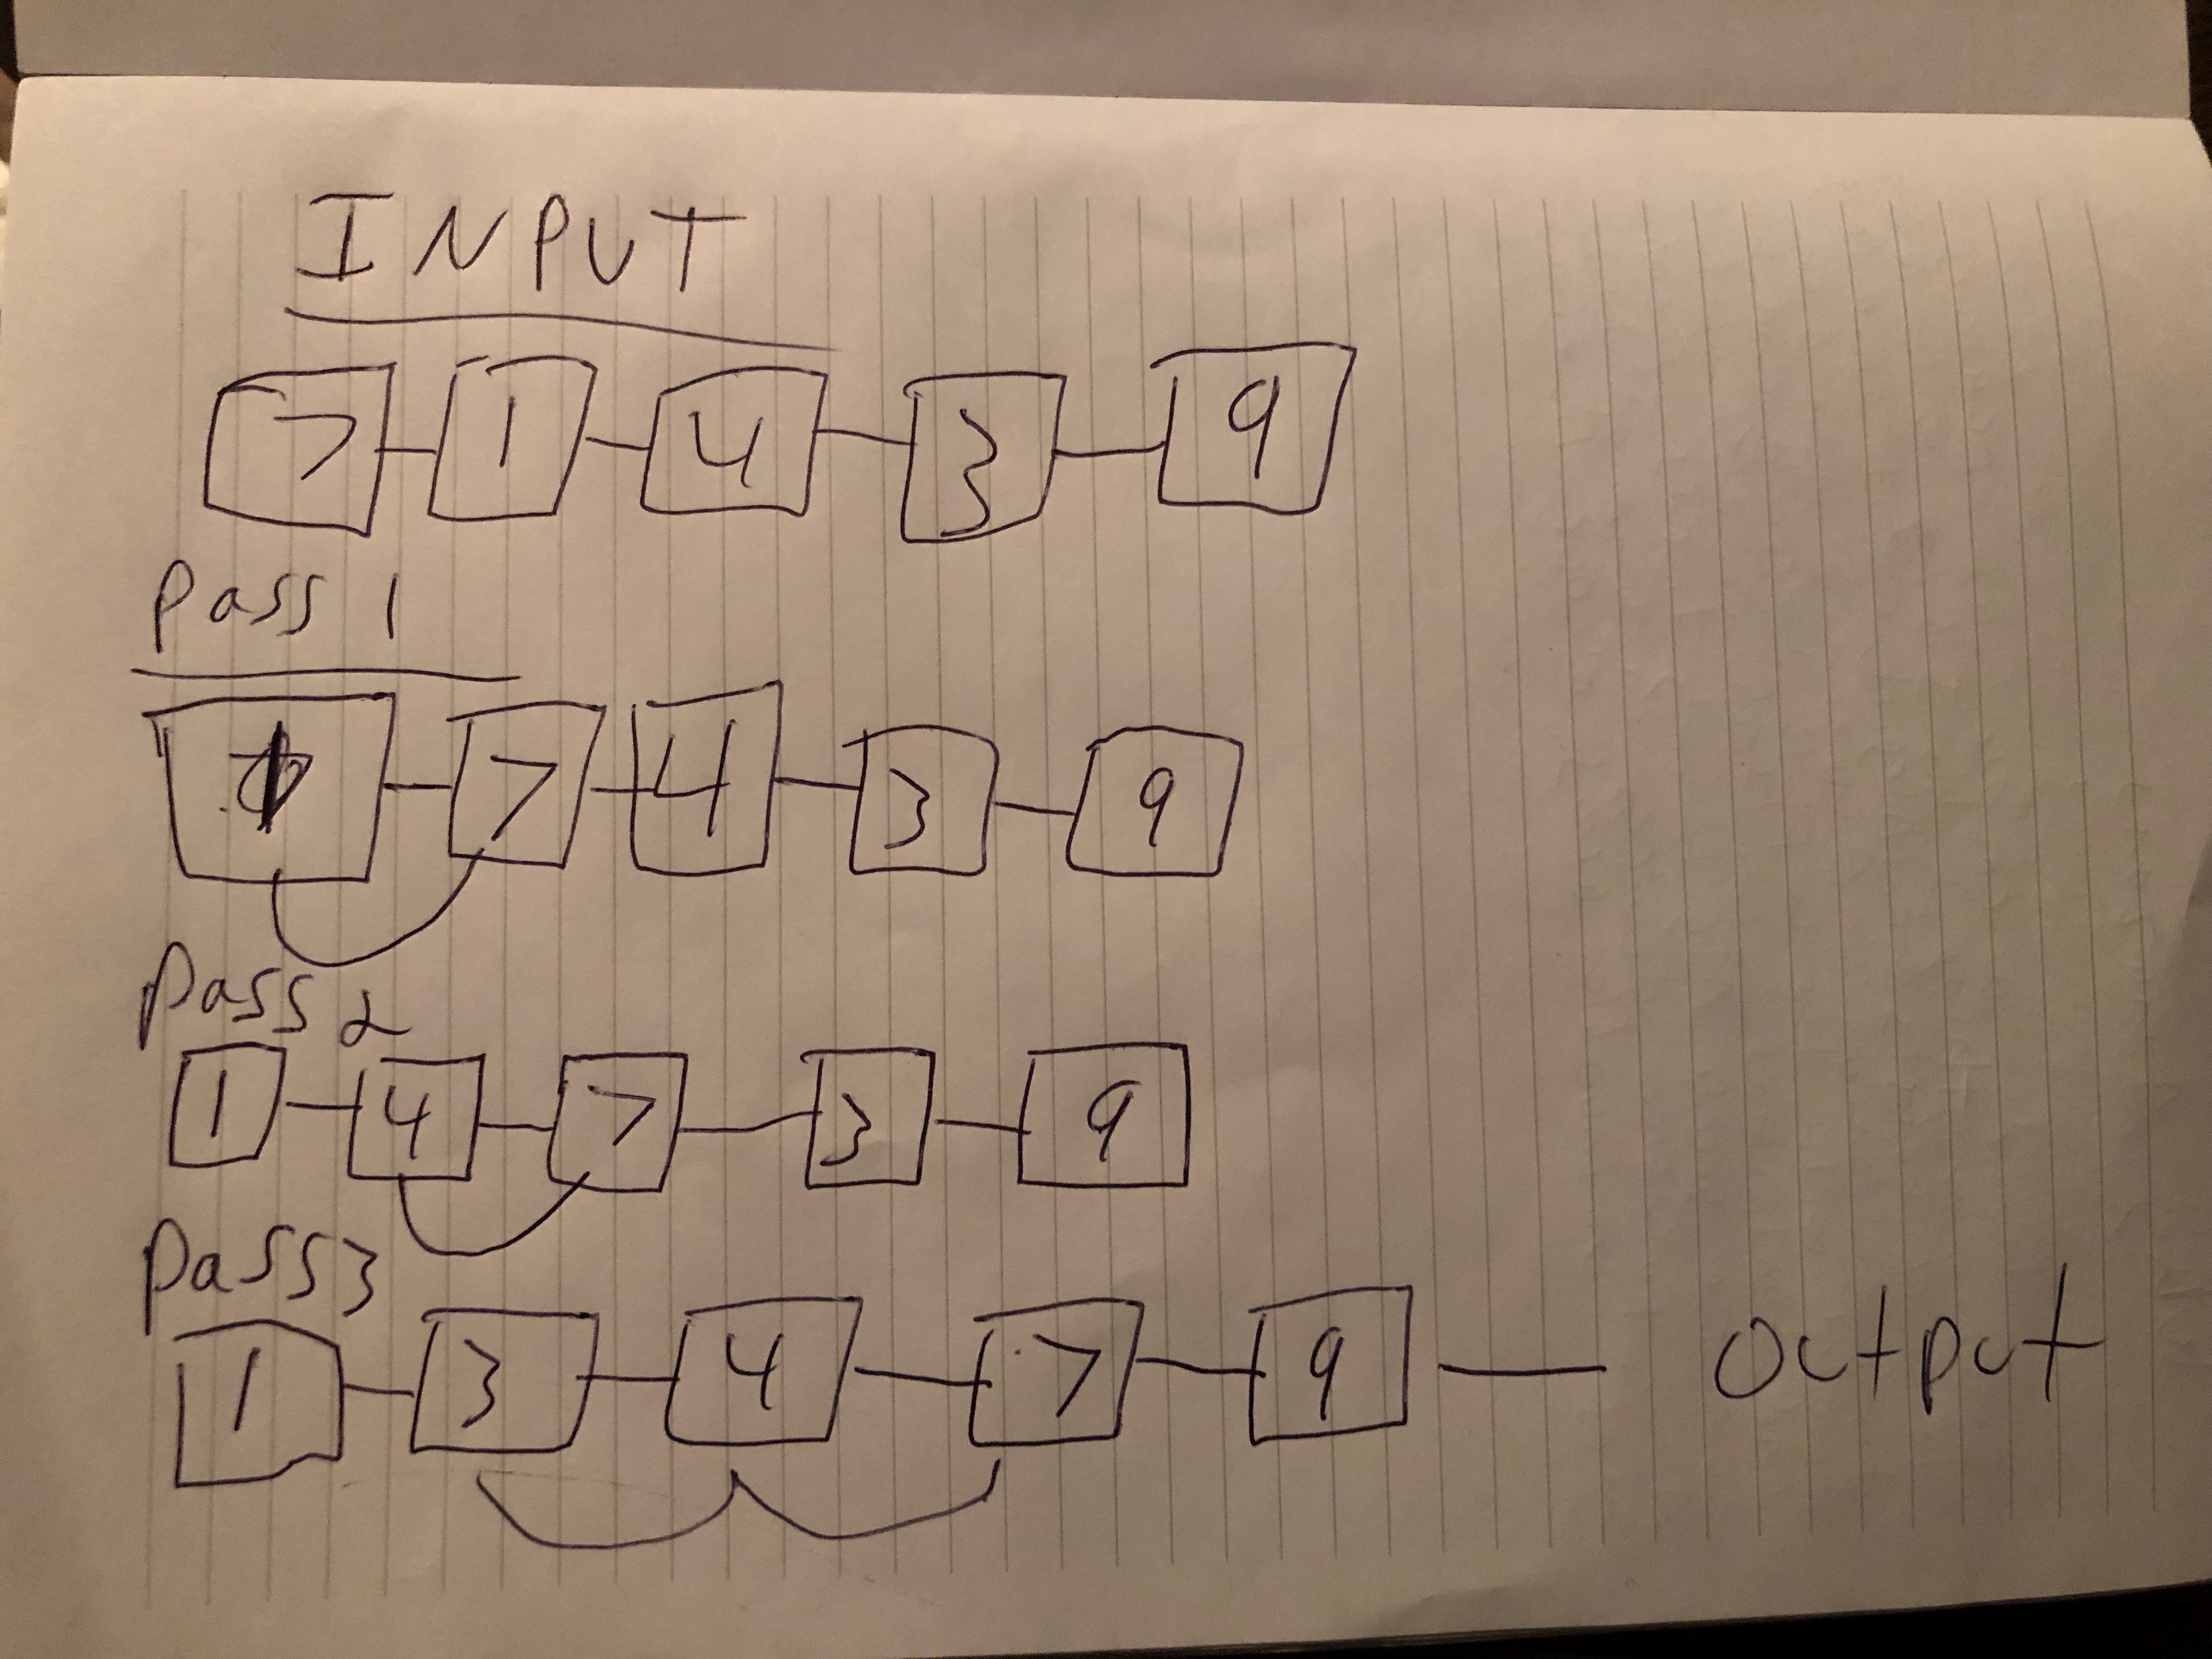 INPUT
7 1 4 3 9
Pass 1
1 7 4 3 9
Pass 2
1 4 7 3 9
Pass 3
1 3 4 7 9 — Output